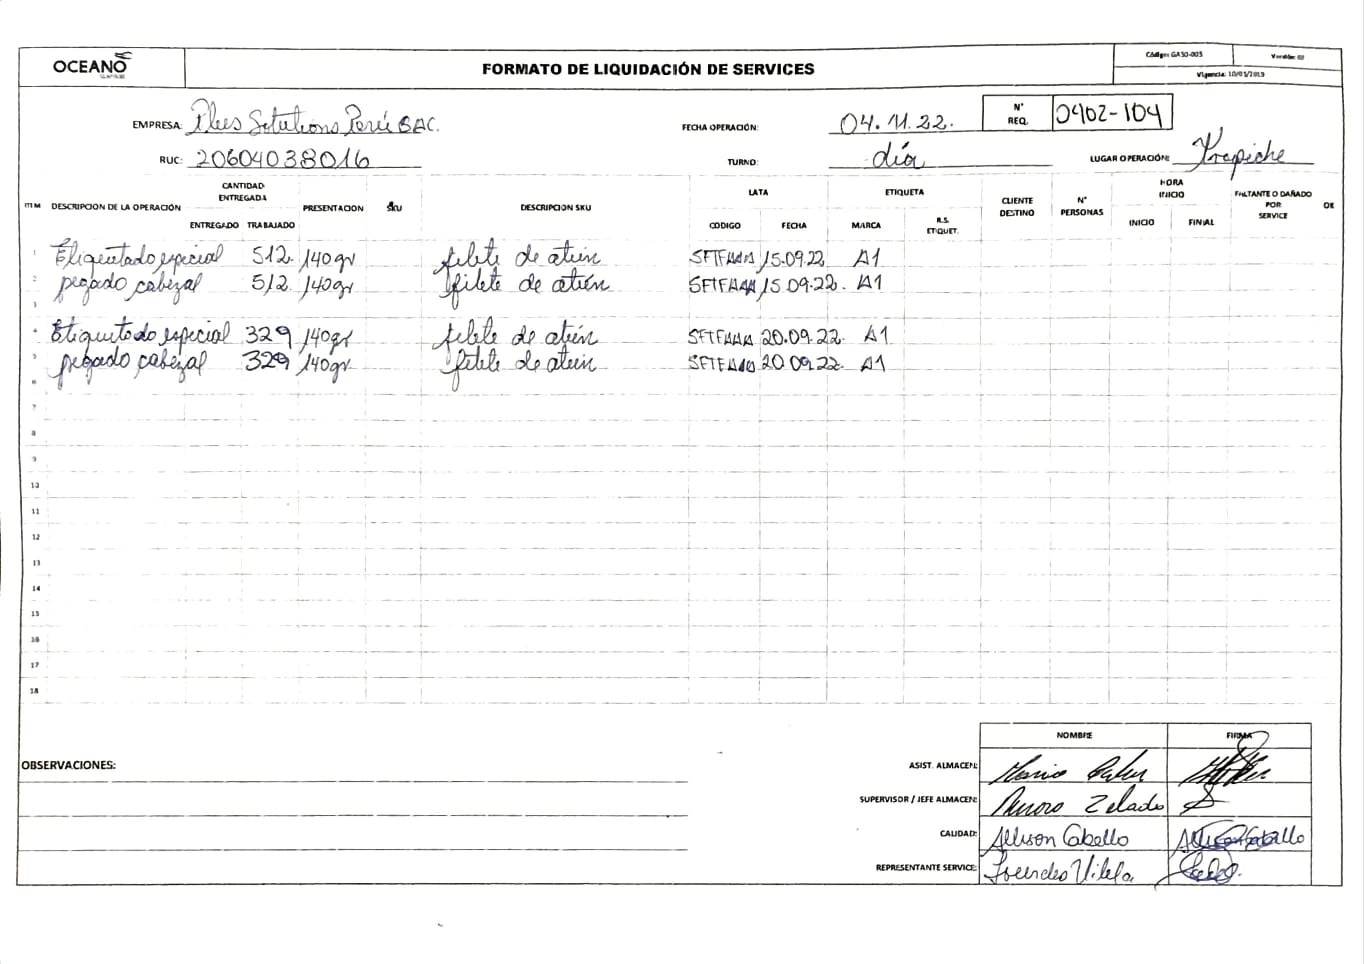 OCEANO
FORMATO DE LIQUIDACIÓN DE SERVICES
Código: GASO-005
Versión: 02
Vigencia: 10/05/2019
EMPRESA: Plus Solutions Perú SAC.
FECHA OPERACIÓN: 04.11.22.
N° REQ. 0402-104
RUC: 20604038016
TURNO: día
LUGAR OPERACIÓN: Trapiche
ITEM DESCRIPCION DE LA OPERACIÓN CANTIDAD ENTREGADA PRESENTACION SKU DESCRIPCION SKU LATA ETIQUETA CLIENTE DESTINO N° PERSONAS HORA INICIO FALTANTE O DAÑADO POR SERVICE
ENTREGADO TRABAJADO CODIGO FECHA MARCA R.S. ETIQUET. INICIO FINIAL
1 Etiquetado especial 512. 140gr filete de atún 15.09.22 A1
2 pegado cabezal 512. 140gr filete de atún 15.09.22. A1
3
4 Etiquetado especial 329 140gr filete de atún 20.09.22. A1
5 pegado cabezal 329 140gr filete de atún 20.09.22. A1
6
7
8
9
10
11
12
13
14
15
16
17
18
NOMBRE FIRMA
OBSERVACIONES:
ASIST. ALMACEN: Mario
SUPERVISOR / JEFE ALMACEN: Zelado
CALIDAD: Allison Cabello
REPRESENTANTE SERVICE: Lourdes Vilela